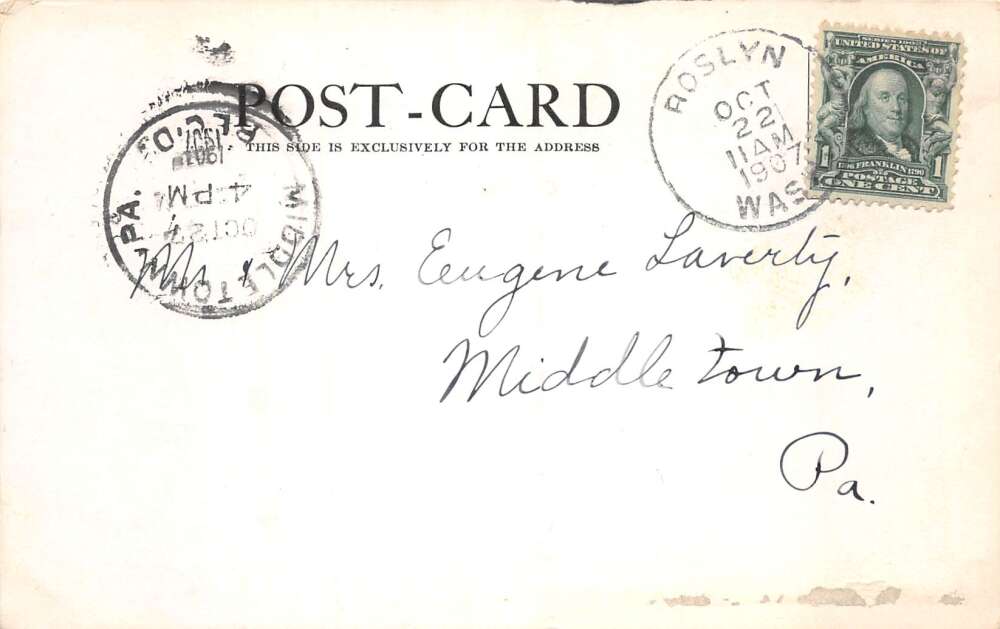 POST-CARD
THIS SIDE IS EXCLUSIVELY FOR THE ADDRESS
ROSLYN
OCT
22
11 AM
1907
WAS
SERIES 1902
UNITED STATES OF
AMERICA
1706 FRANKLIN 1790
POSTAGE
1 ONE CENT 1
MIDDLETOWN, PA.
OCT 27
4 PM
1907
REC'D.
Mr. & Mrs. Eugene Laverty,
Middletown,
Pa.